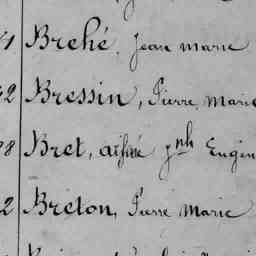 Brehé, Jean Marie
2 Bressin, Pierre Marie
8 Bret, aimé jph Eugèn
2 Bréton, Pierre Marie